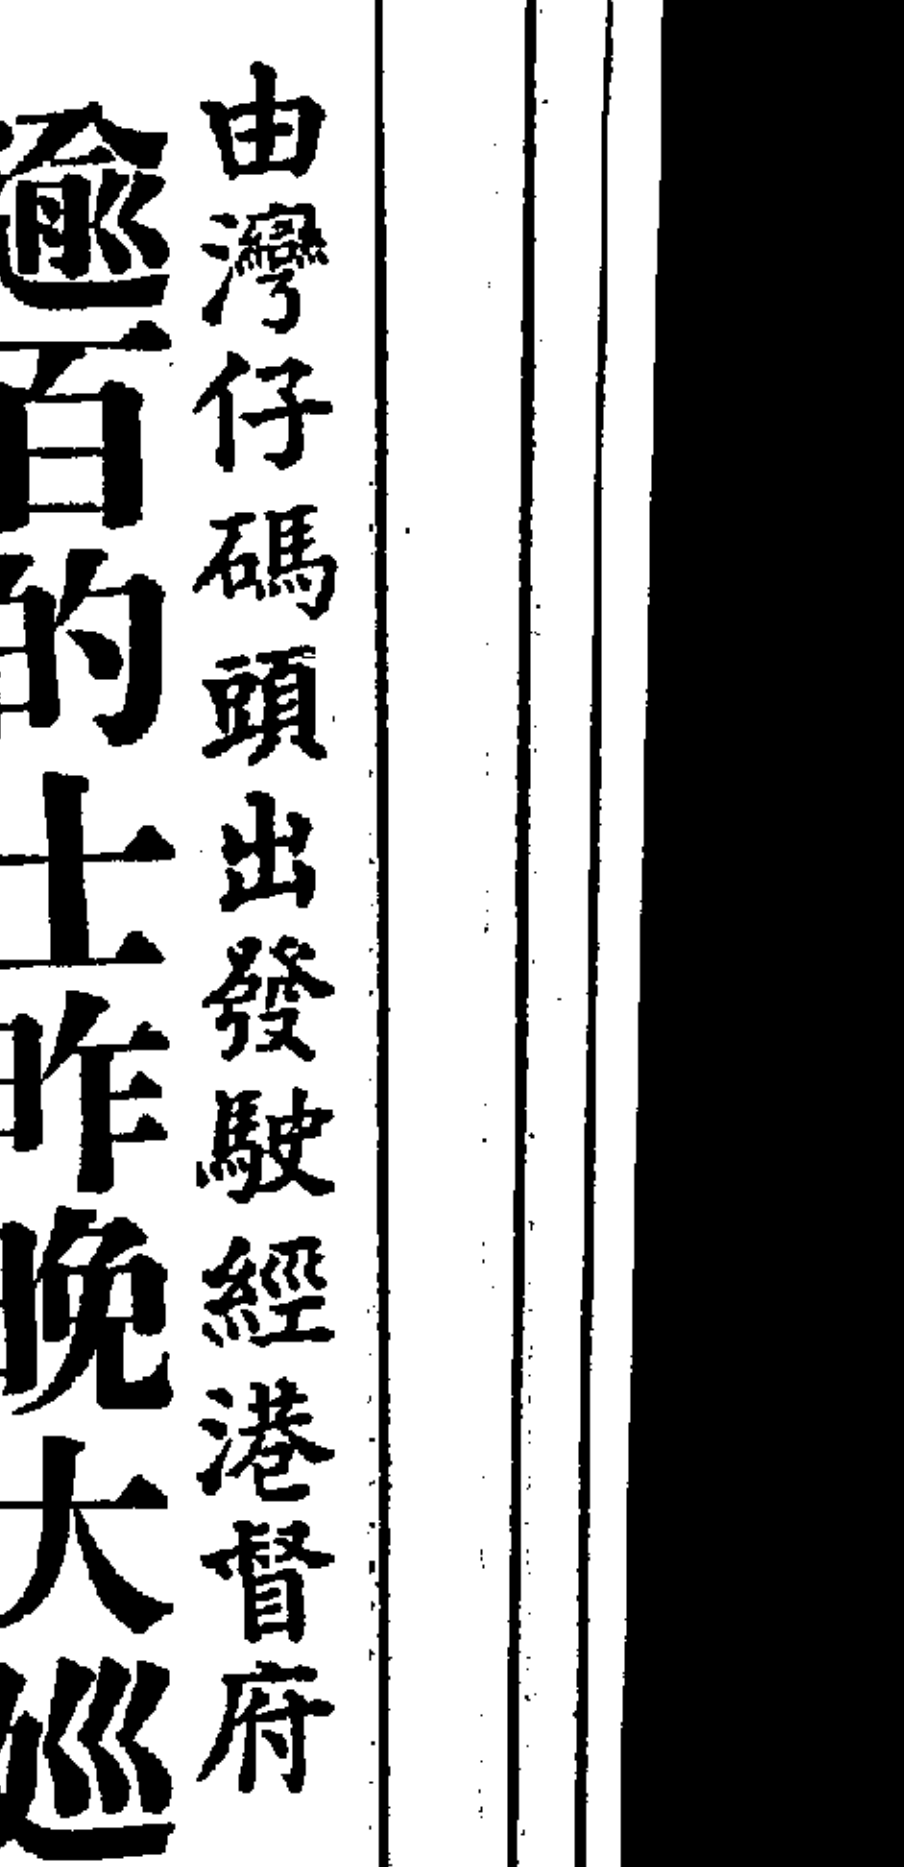 由灣仔碼頭出發駛經港督府
逾百的士昨晚大巡